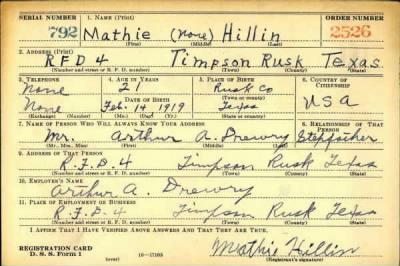 SERIAL NUMBER 1. NAME (Print) ORDER NUMBER
792 Mathie (none) Hillin 2526
(First) (Middle) (Last)
2. ADDRESS (Print)
RFD 4 Timpson Rusk Texas
(Number and street or R. F. D. number) (Town) (County) (State)
3. TELEPHONE 4. AGE IN YEARS 5. PLACE OF BIRTH 6. COUNTRY OF CITIZENSHIP
None 21 Rusk Co
DATE OF BIRTH (Town or county)
None Feb. 14 1919 Texas USA
(Exchange) (Number) (Mo.) (Day) (Yr.) (State or country)
7. NAME OF PERSON WHO WILL ALWAYS KNOW YOUR ADDRESS 8. RELATIONSHIP OF THAT PERSON
Mr. Arthur A. Drewry Stepfather
(Mr., Mrs., Miss) (First) (Middle) (Last)
9. ADDRESS OF THAT PERSON
R.F.D-4 Timpson Rusk Texas
(Number and street or R. F. D. number) (Town) (County) (State)
10. EMPLOYER'S NAME
Arthur A. Drewry
11. PLACE OF EMPLOYMENT OR BUSINESS
R.F.D-4 Timpson Rusk Texas
(Number and street or R. F. D. number) (Town) (County) (State)
I AFFIRM THAT I HAVE VERIFIED ABOVE ANSWERS AND THAT THEY ARE TRUE.
REGISTRATION CARD Mathie Hillin
D. S. S. Form 1 (over) 16—17105 (Registrant's signature)